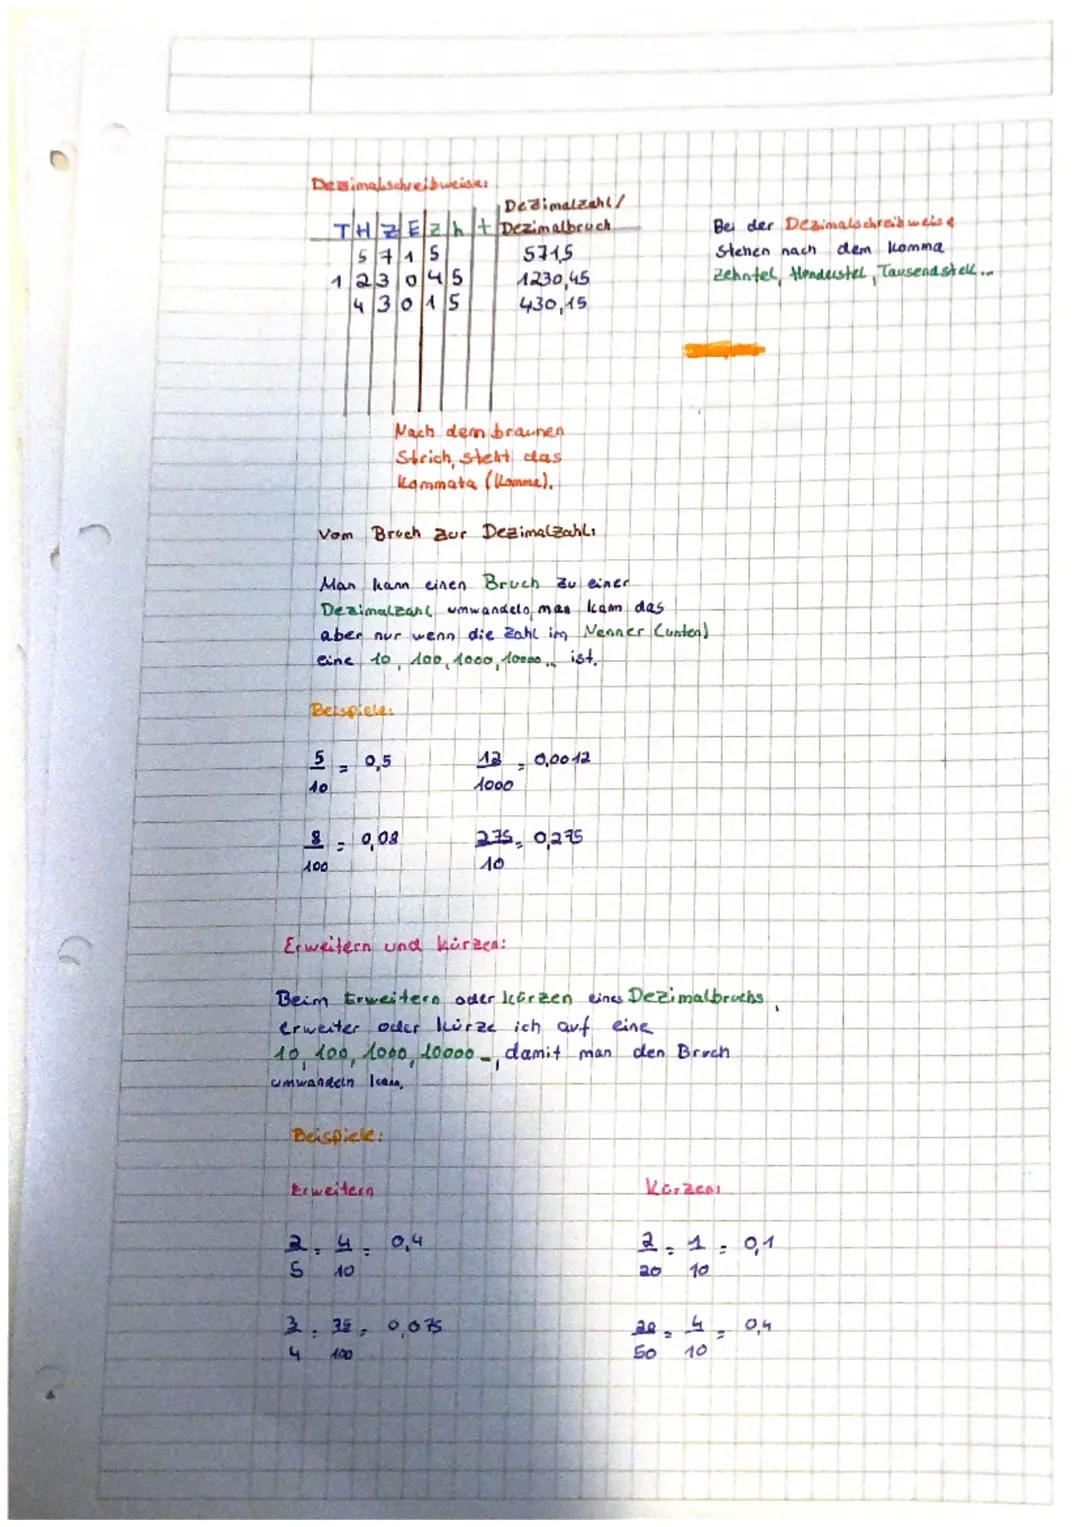 Dezimalschreibweise:
Dezimalzahl/
T H Z E z h t Dezimalbruch
5 7 1 5 571,5
1 2 3 0 4 5 1230,45
4 3 0 1 5 430,15
Bei der Dezimalschreibweise
stehen nach dem Komma
Zehntel, Hunderstel, Tausendstel...
Nach dem braunen
Strich, steht das
Kommata (Komma).
Vom Bruch zur Dezimalzahl:
Man kann einen Bruch zu einer
Dezimalzahl umwandeln, man kann das
aber nur wenn die Zahl im Nenner (unten)
eine 10, 100, 1000, 10000... ist.
Beispiele:
5/10 = 0,5 12/1000 = 0,0012
8/100 = 0,08 275/10 = 0,275
Erweitern und kürzen:
Beim Erweitern oder kürzen eines Dezimalbruchs,
erweiter oder kürze ich auf eine
10, 100, 1000, 10000 -, damit man den Bruch
umwandeln kann.
Beispiele:
Erweitern Kürzen:
2/5 = 4/10 = 0,4 2/20 = 1/10 = 0,1
3/4 = 75/100 = 0,075 20/50 = 4/10 = 0,4